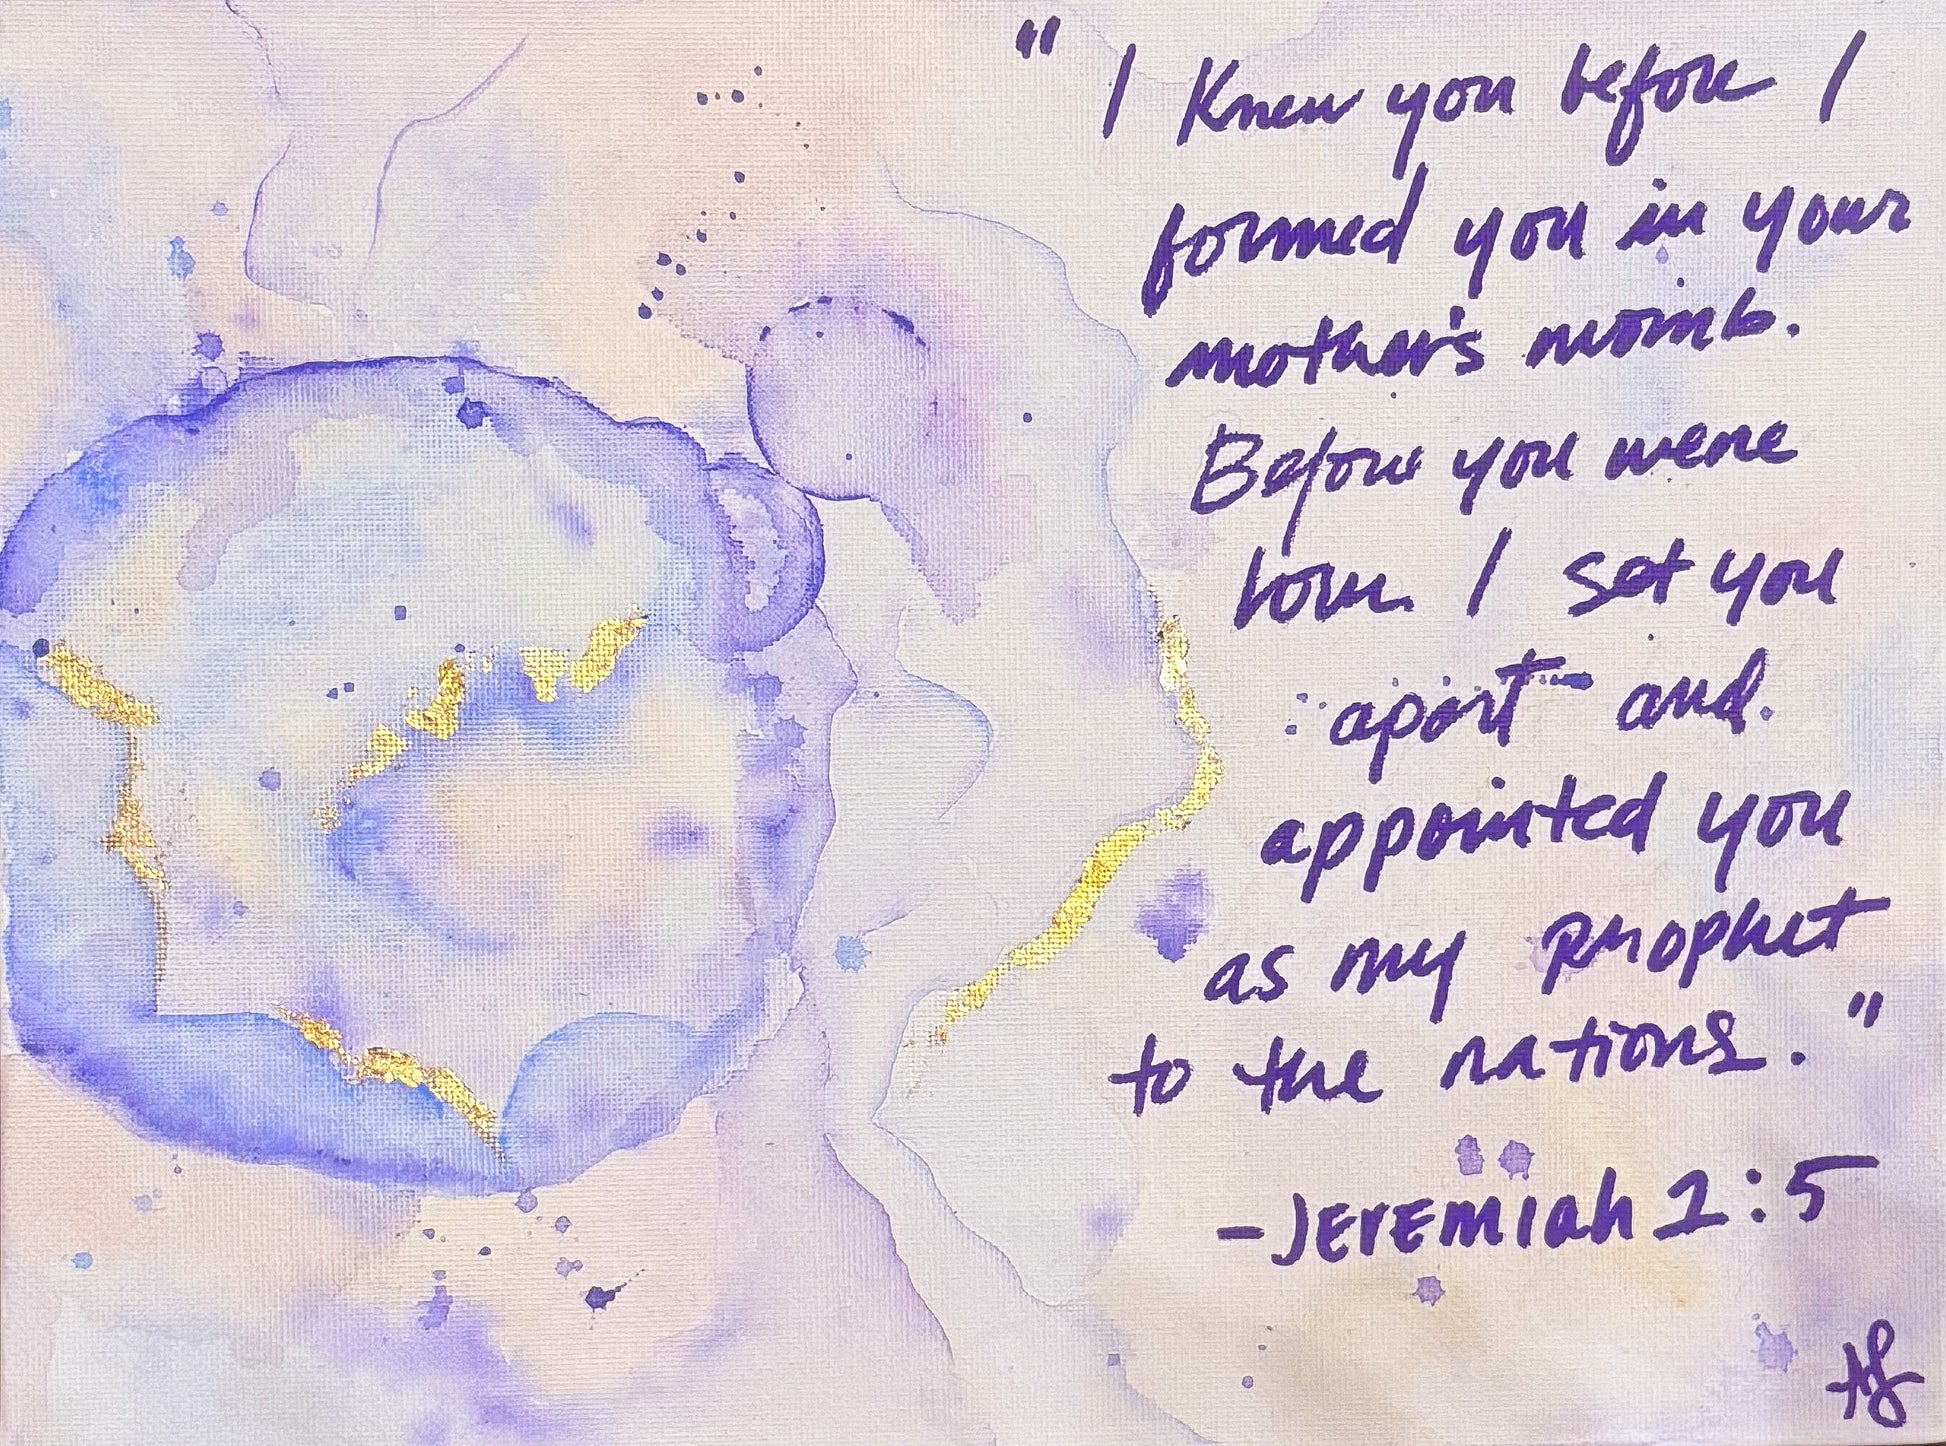 " I Knew you before I
formed you in your
mother's womb.
Before you were
born I set you
apart and
appointed you
as my prophet
to the nations. "
-JEREMIAH 1:5